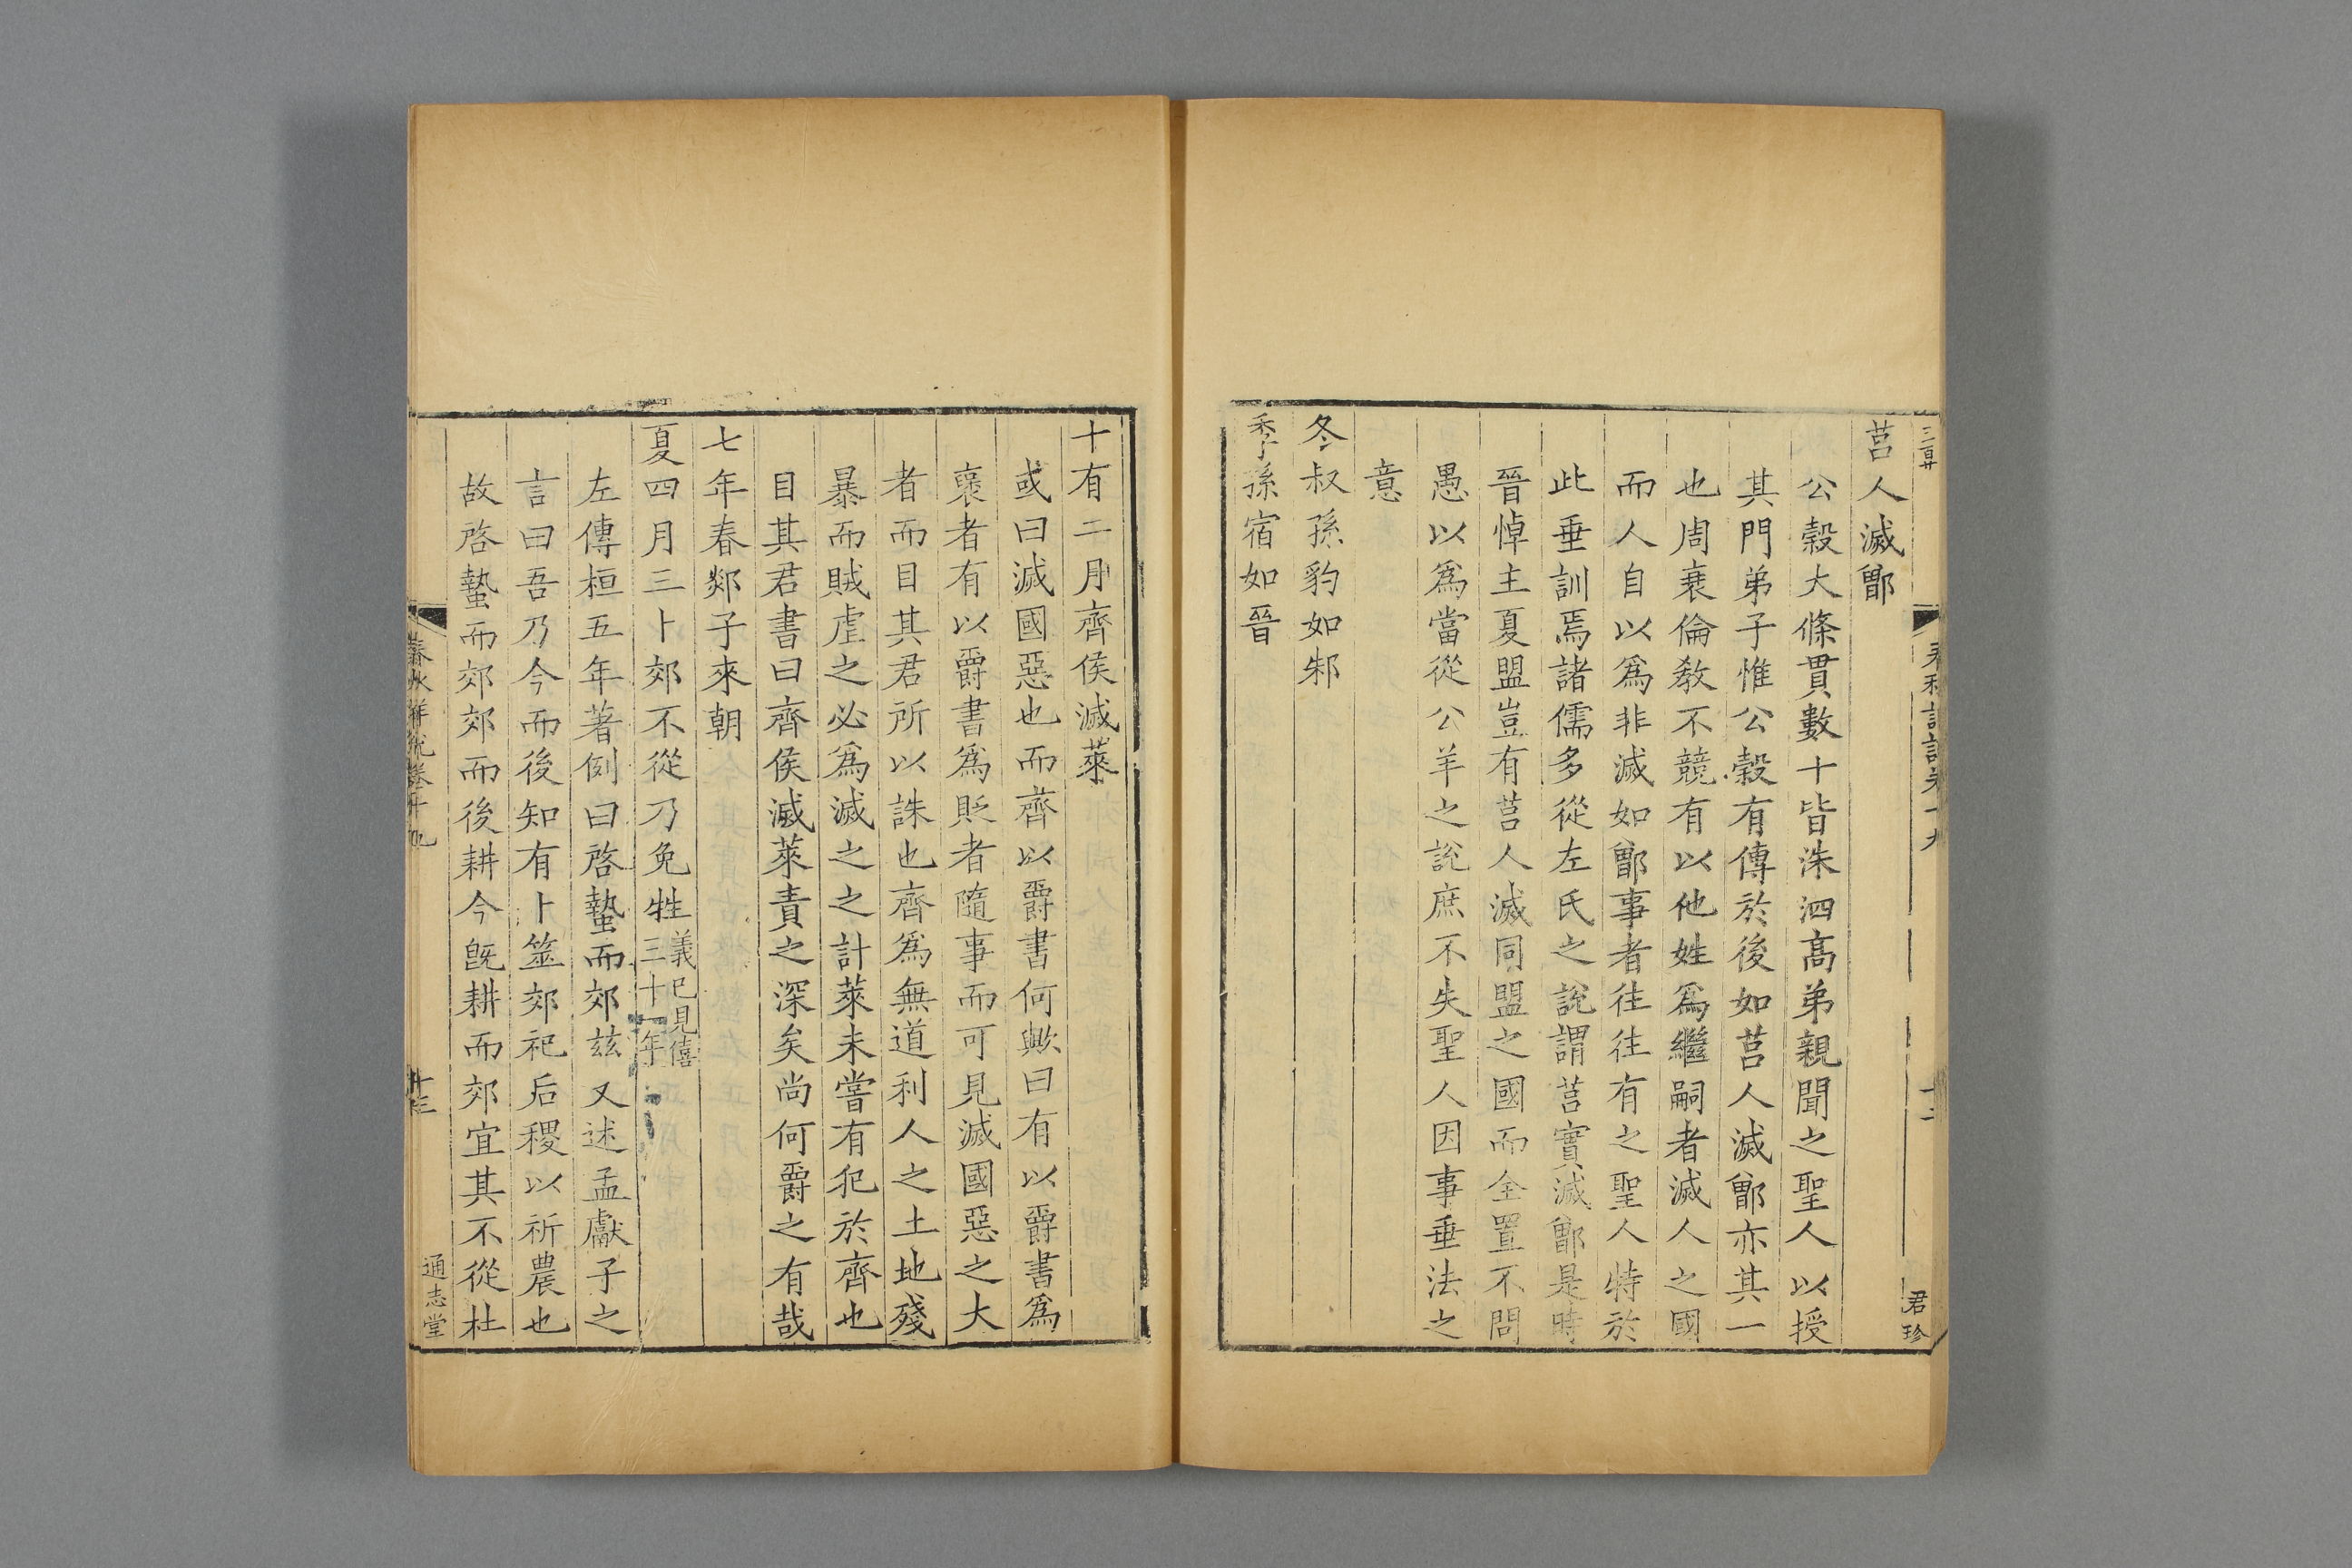 莒人滅鄫
公穀大條貫數十皆洙泗髙弟親聞之聖人以授
其門弟子惟公穀有傳於後如莒人滅鄫亦其一
也周衰倫教不競有以他姓爲繼嗣者滅人之國
而人自以爲非滅如鄫事者往往有之聖人特於
此垂訓焉諸儒多從左氏之說謂莒實滅鄫是時
晉悼主夏盟豈有莒人滅同盟之國而全置不問
愚以爲當從公羊之說庶不失聖人因事垂法之
意
冬叔孫豹如邾
季孫宿如晉
君珍
十有二月齊侯滅萊
或曰滅國惡也而齊以爵書何歟曰有以爵書爲
襃者有以爵書爲貶者隨事而可見滅國惡之大
者而目其君所以誅也齊爲無道利人之土地殘
暴而賊虐之必爲滅之之計萊未嘗有犯於齊也
目其君書曰齊侯滅萊責之深矣尚何爵之有哉
七年春郯子來朝
夏四月三卜郊不從乃免牲義已見僖三十一年
左傳桓五年著例曰啓蟄而郊兹又述孟獻子之
言曰吾乃今而後知有卜筮郊祀后稷以祈農也
故啓蟄而郊郊而後耕今旣耕而郊宜其不從杜
春秋詳說卷十九
十三
通志堂